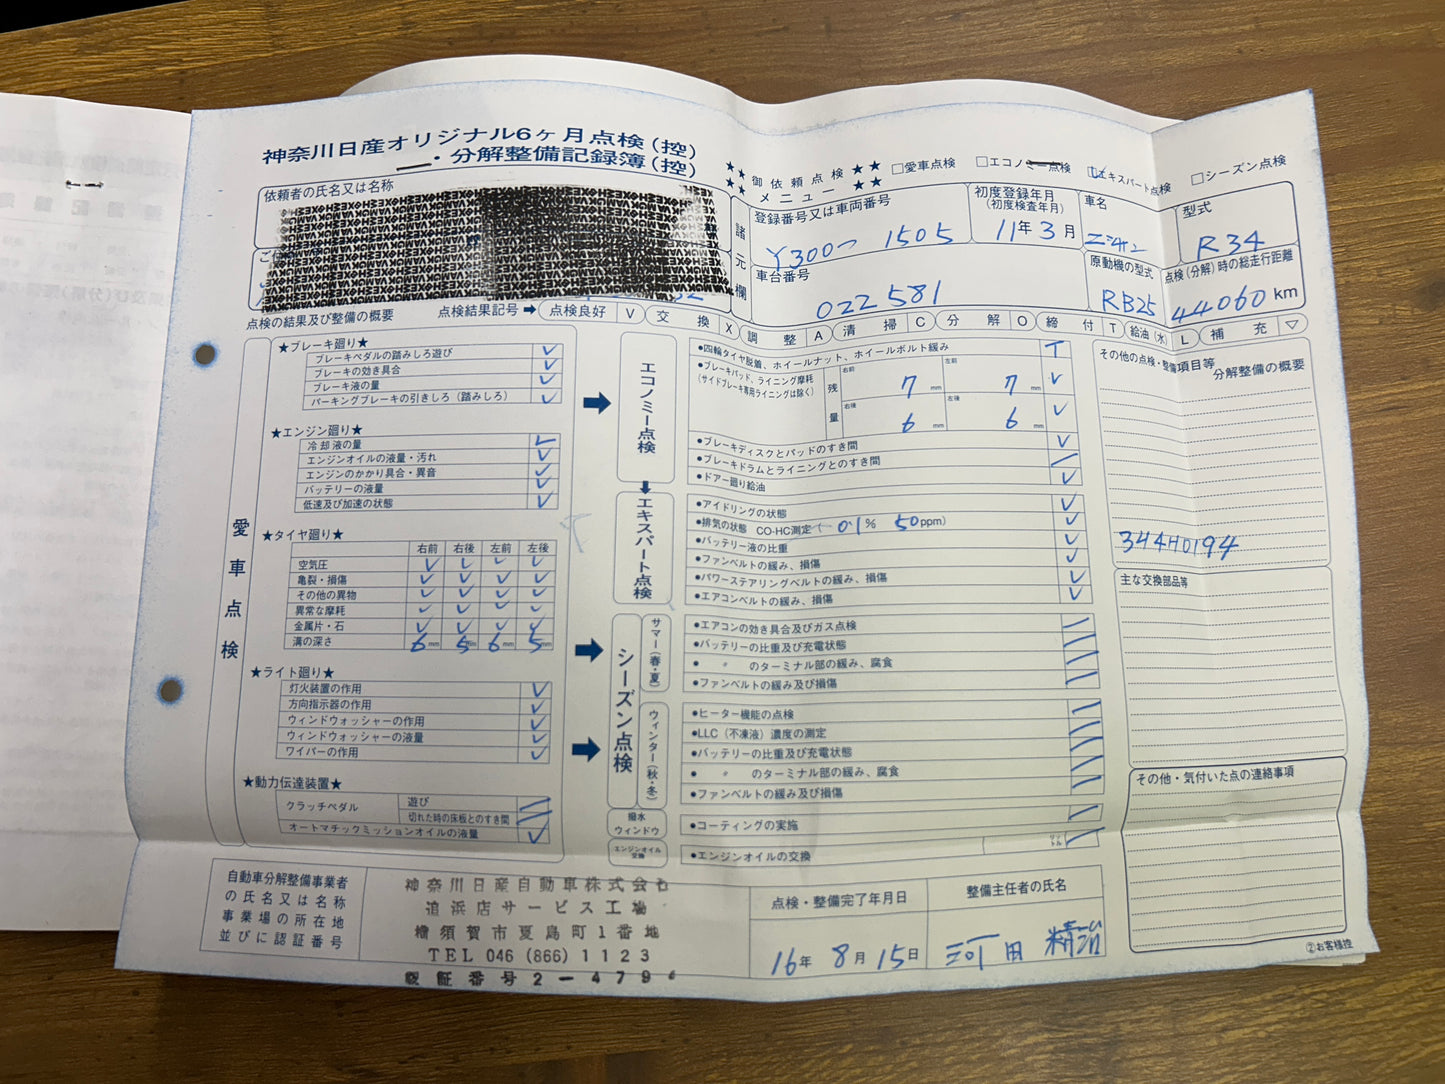 神奈川日産オリジナル6ヶ月点検(控)
・分解整備記録簿(控)
★★ 御依頼点検 ★★
★★ メニュー ★★
□愛車点検 □エコノミー点検 エキスパート点検 □シーズン点検
依頼者の氏名又は名称
諸元欄
登録番号又は車両番号
1505
初度登録年月
(初度検査年月)
11年3月
車名
型式
R34
車台番号
022581
原動機の型式
RB25
点検(分解)時の総走行距離
44060 km
点検の結果及び整備の概要 点検結果記号➡ 点検良好 V 交換 X 調整 A 清掃 C 分解 O 締付 T 給油(水) L 補充 ▽
愛車点検
★ブレーキ廻り★
ブレーキペダルの踏みしろ遊び ✓
ブレーキの効き具合 ✓
ブレーキ液の量 ✓
パーキングブレーキの引きしろ(踏みしろ) ✓
★エンジン廻り★
冷却液の量 ✓
エンジンオイルの液量・汚れ ✓
エンジンのかかり具合・異音 ✓
バッテリーの液量 ✓
低速及び加速の状態 ✓
★タイヤ廻り★
右前 右後 左前 左後
空気圧 ✓ ✓ ✓ ✓
亀裂・損傷 ✓ ✓ ✓ ✓
その他の異物 ✓ ✓ ✓ ✓
異常な摩耗 ✓ ✓ ✓ ✓
金属片・石 ✓ ✓ ✓ ✓
溝の深さ 6mm 5mm 6mm 5mm
★ライト廻り★
灯火装置の作用 ✓
方向指示器の作用 ✓
ウィンドウォッシャーの作用 ✓
ウィンドウォッシャーの液量 ✓
ワイパーの作用 ✓
★動力伝達装置★
クラッチペダル 遊び
切れた時の床板とのすき間
オートマチックミッションオイルの液量 ✓
エコノミー点検
●四輪タイヤ脱着、ホイールナット、ホイールボルト緩み T
●ブレーキパッド、ライニング摩耗
(サイドブレーキ専用ライニングは除く)
残量
右前 7 mm 左前 7 mm ✓
右後 6 mm 左後 6 mm ✓
●ブレーキディスクとパッドのすき間 ✓
●ブレーキドラムとライニングとのすき間
●ドアー廻り給油 ✓
エキスパート点検
●アイドリングの状態 ✓
●排気の状態 CO-HC測定( 0.1% 50ppm) ✓
●バッテリー液の比重 ✓
●ファンベルトの緩み、損傷 ✓
●パワーステアリングベルトの緩み、損傷 ✓
●エアコンベルトの緩み、損傷 ✓
シーズン点検
サマー(春・夏)
●エアコンの効き具合及びガス点検
●バッテリーの比重及び充電状態
● 〃 のターミナル部の緩み、腐食
●ファンベルトの緩み及び損傷
ウィンター(秋・冬)
●ヒーター機能の点検
●LLC(不凍液)濃度の測定
●バッテリーの比重及び充電状態
● 〃 のターミナル部の緩み、腐食
●ファンベルトの緩み及び損傷
撥水
ウィンドウ
●コーティングの実施
エンジンオイル
交換
●エンジンオイルの交換
リットル
その他の点検・整備項目等
分解整備の概要
344H0194
主な交換部品等
その他・気付いた点の連絡事項
自動車分解整備事業者
の氏名又は名称
事業場の所在地
並びに認証番号
神奈川日産自動車株式会社
追浜店サービス工場
横須賀市夏島町1番地
TEL 046(866)1123
認証番号2-479
点検・整備完了年月日
16年 8月 15日
整備主任者の氏名
河田 精治
②お客様控